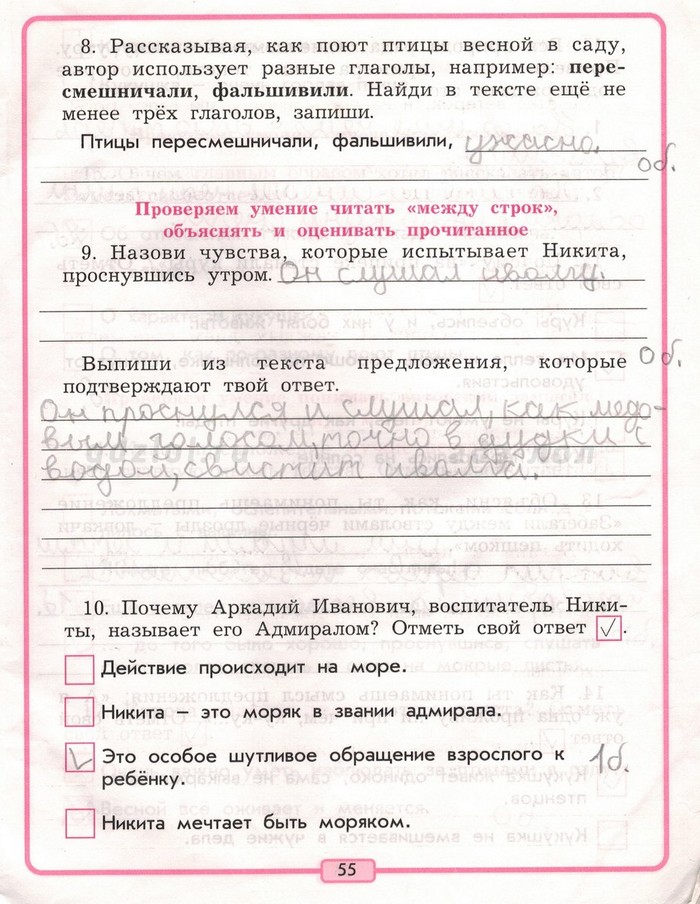 8. Рассказывая, как поют птицы весной в саду,
автор использует разные глаголы, например: пере-
смешничали, фальшивили. Найди в тексте ещё не
менее трёх глаголов, запиши.
Птицы пересмешничали, фальшивили, ужасно.
0б.
Проверяем умение читать «между строк»,
объяснять и оценивать прочитанное
9. Назови чувства, которые испытывает Никита,
проснувшись утром. Он слушал иволгу.
0б.
Выпиши из текста предложения, которые
подтверждают твой ответ.
Он проснулся и слушал, как медо-
вым голосом, точно в дудки с
водой, свистит иволга.
10. Почему Аркадий Иванович, воспитатель Ники-
ты, называет его Адмиралом? Отметь свой ответ ✓.
Действие происходит на море.
Никита – это моряк в звании адмирала.
✓ Это особое шутливое обращение взрослого к 1б.
ребёнку.
Никита мечтает быть моряком.
55